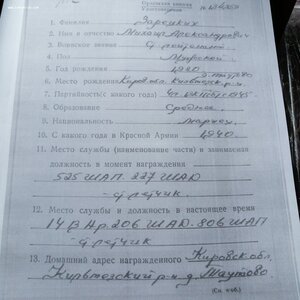 Орденская книжка
1. Фамилия Зарецких
2. Имя и отчество Михаил Александрович
3. Воинское звание
4. Пол Мужской
5. Год рождения 1920
6. Место рождения Кировская
7. Партийность (с какого года)
8. Образование Среднее
9. Национальность
10. С какого года в Красной Армии 1940
11. Место службы (наименование части) и занимаемая
должность в момент награждения
525 ШАП 227 ШАД
летчик
12. Место службы и должность в настоящее время
14 В Ар. 206 ШАД. 806 ШАП
летчик
13. Домашний адрес награжденного Кировск обл,
р-н д.